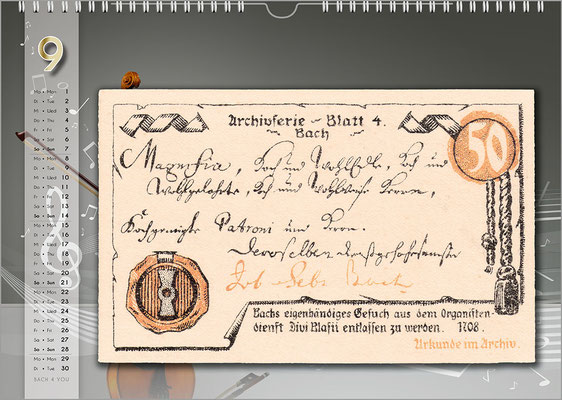 9
Mo • Mon 1
Di • Tue 2
Mi • Wed 3
Do • Thu 4
Fr • Fri 5
Sa • Sat 6
So • Sun 7
Mo • Mon 8
Di • Tue 9
Mi • Wed 10
Do • Thu 11
Fr • Fri 12
Sa • Sat 13
So • Sun 14
Mo • Mon 15
Di • Tue 16
Mi • Wed 17
Do • Thu 18
Fr • Fri 19
Sa • Sat 20
So • Sun 21
Mo • Mon 22
Di • Tue 23
Mi • Wed 24
Do • Thu 25
Fr • Fri 26
Sa • Sat 27
So • Sun 28
Mo • Mon 29
Di • Tue 30
BACH 4 YOU
Archivserie – Blatt 4.
Bach
50
Hoch und WohlEdle, Hoch und
Wohlgelahrte, Hoch und Wohlweise Herren,
Hochgeneigte Patroni und Herren.
Deroselben
Joh. Seb. Bach
Bachs eigenhändiges Gesuch aus dem Organisten-
dienst Divi Blasii entlassen zu werden. 1708.
Urkunde im Archiv.